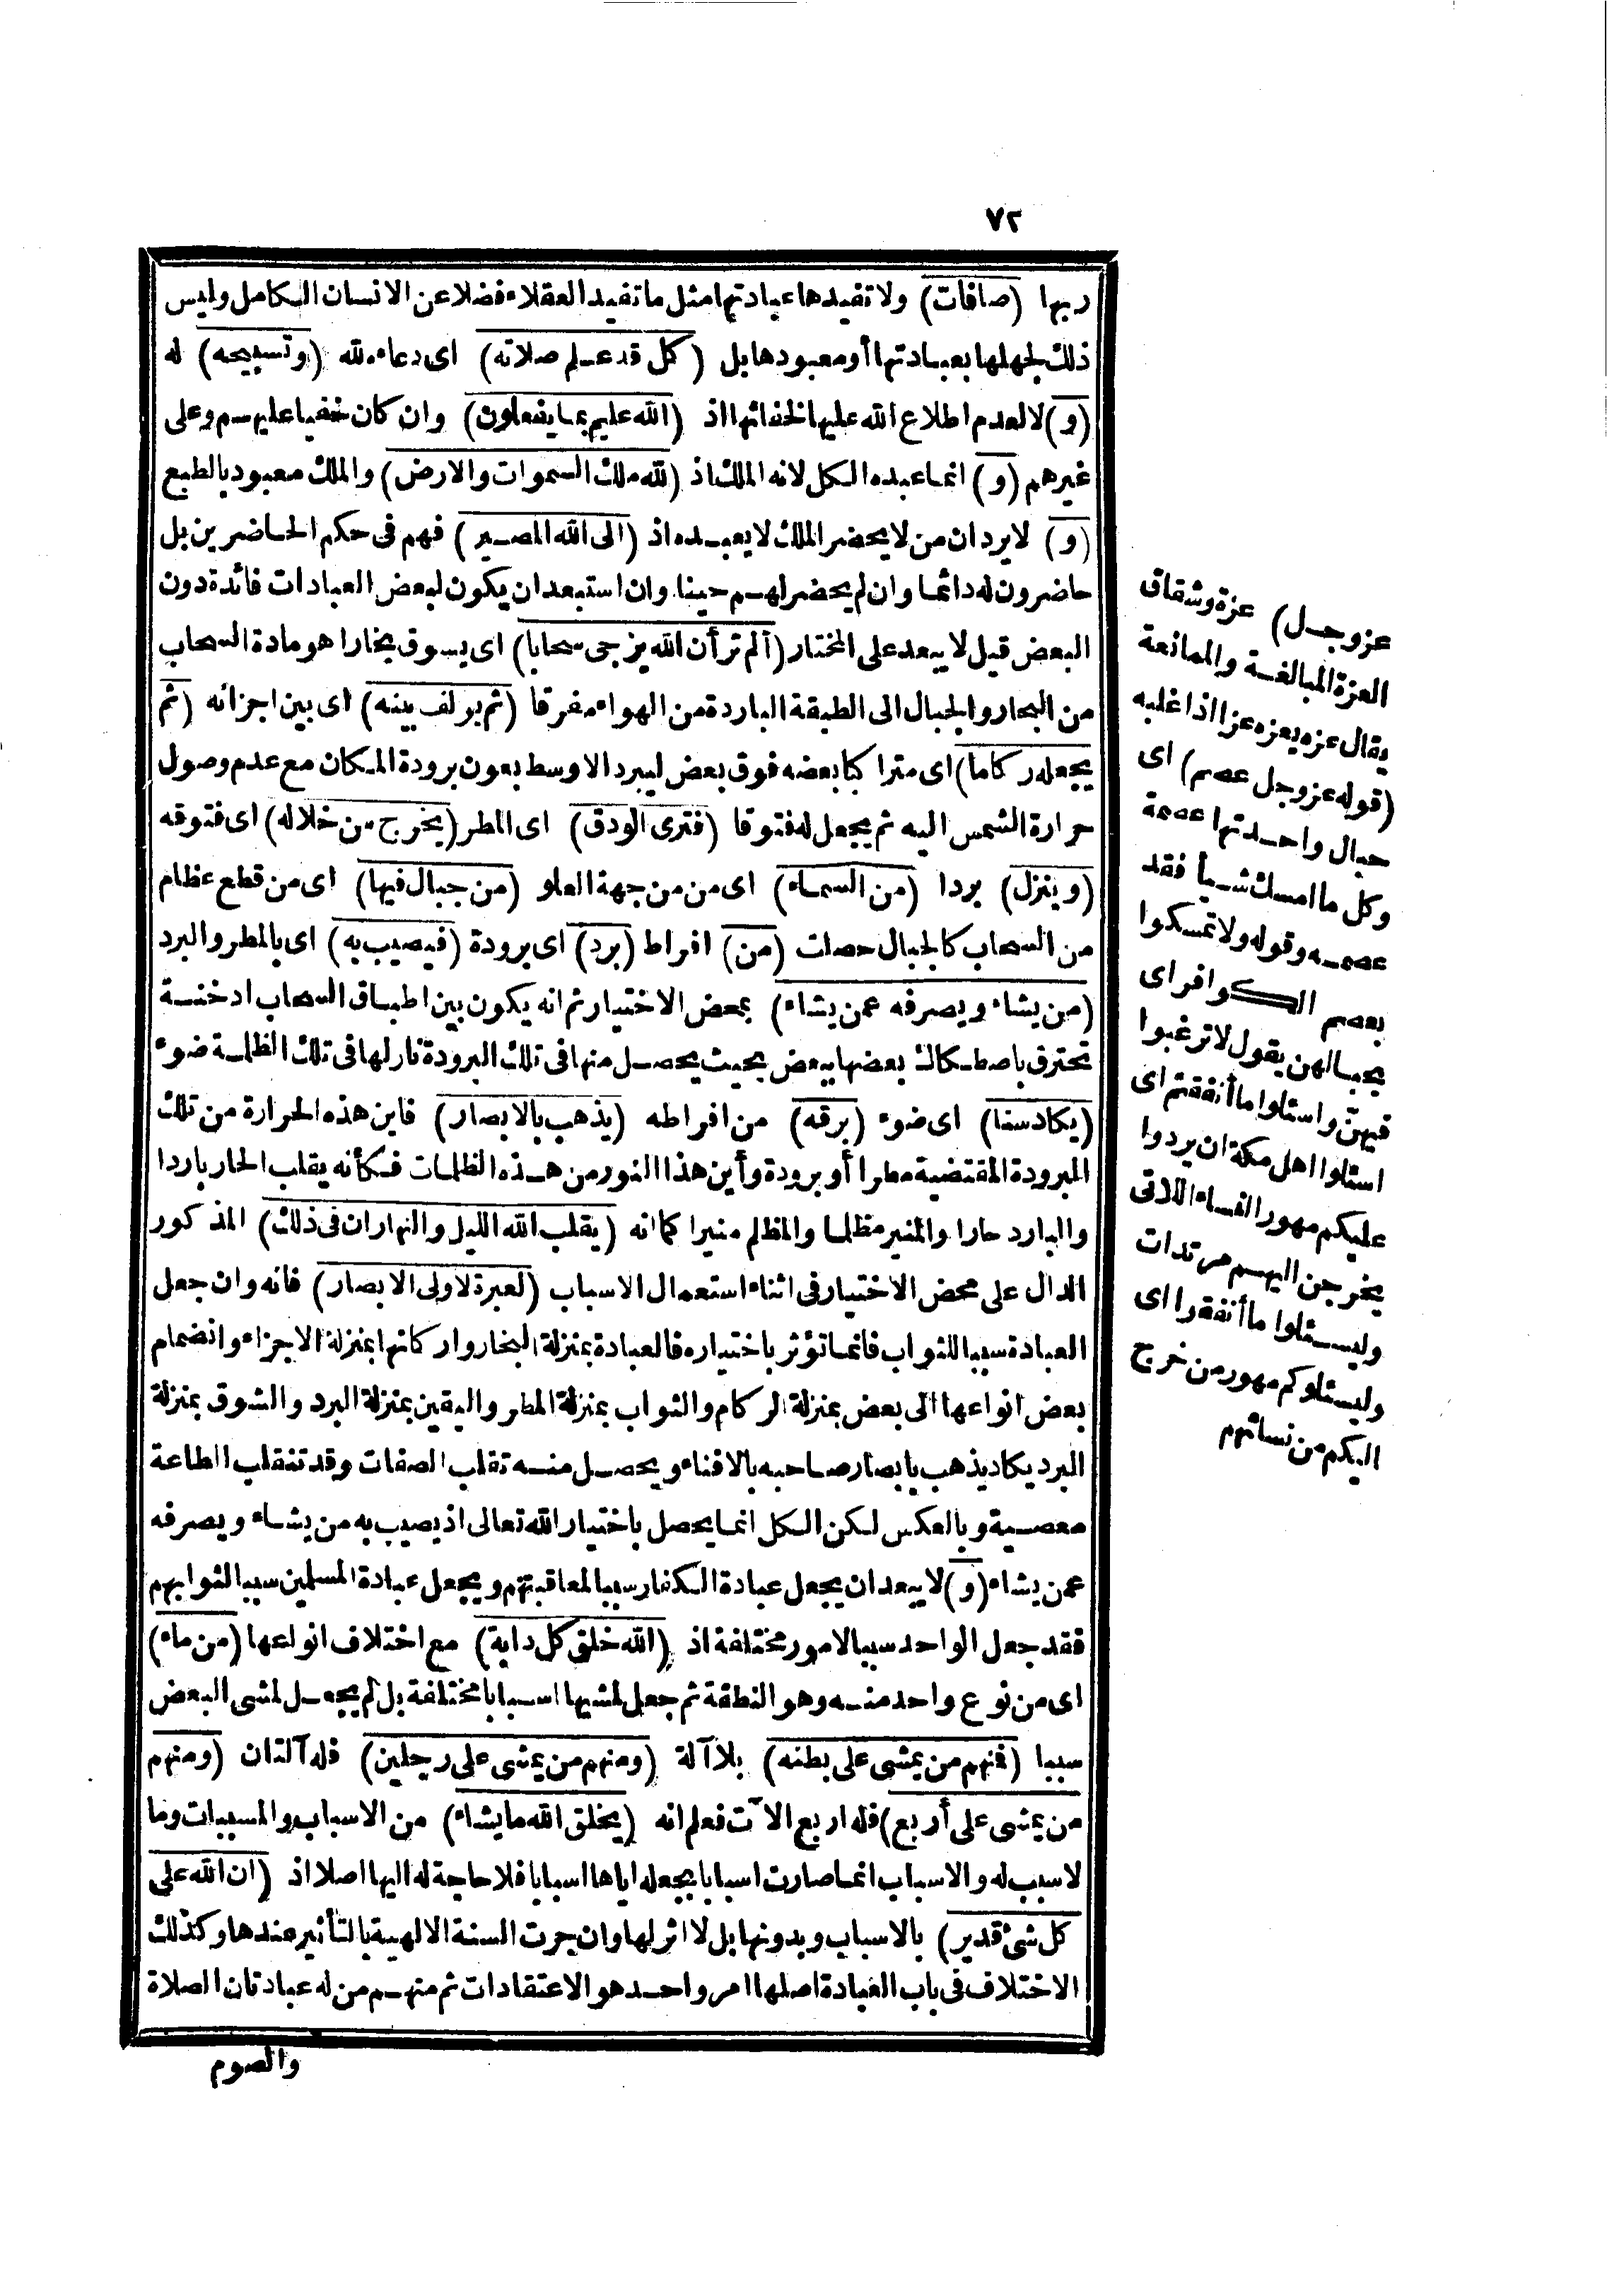 ٧٢
ربها (صافات) ولا تفيدها عبادتها مثل ما تفيد العقلاء فضلا عن الانسان الكامل وليس
ذلك لجهلها بعبادتها أو معبودها بل (كل قد علم صلاته) اى دعاءه لله (وتسبيحه) له
(و) لا لعدم اطلاع الله عليها لخفائها اذ (الله عليم بما يفعلون) وان كان خفيا عليهم وعلى
غيرهم (و) انما عبده الكل لانه الملك اذ (لله ملك السموات والارض) والملك معبود بالطبع
(و) لا يرد ان من لا يحضر الملك لا يعبده اذ (الى الله المصير) فهم فى حكم الحاضرين بل
حاضرون له دائما وان لم يحضر لهم حينا وان استبعد ان يكون لبعض العبادات فائدة دون
البعض قيل لا يبعد على المختار (ألم تر أن الله يزجى سحابا) اى يسوق بخارا هو مادة السحاب
من البحار والجبال الى الطبقة الباردة من الهواء مفرقا (ثم يولف بينه) اى بين اجزائه (ثم
يجعله ركاما) اى متراكبا بعضه فوق بعض ليبرد الاوسط بعون برودة المكان مع عدم وصول
حرارة الشمس اليه ثم يجعل له فتوقا (فترى الودق) اى المطر (يخرج من خلاله) اى فتوقه
(وينزل) بردا (من السماء) اى من من جهة العلو (من جبال فيها) اى من قطع عظام
من السحاب كالجبال حصلت (من) افراط (برد) اى برودة (فيصيب به) اى بالمطر والبرد
(من يشاء ويصرفه عمن يشاء) بمحض الاختيار ثم انه يكون بين اطباق السحاب ادخنة
تحترق باصطكاك بعضها ببعض بحيث يحصل منها فى تلك البرودة نار لها فى تلك الظلمة ضوء
(يكاد سنا) اى ضوء (برقه) من افراطه (يذهب بالابصار) فاين هذه الحرارة من تلك
البرودة المقتضية مطرا أو برودة وأين هذا النور من هذه الظلمات فكأنه يقلب الحار باردا
والبارد حارا والمنير مظلما والمظلم منيرا كما انه (يقلب الله الليل والنهار ان فى ذلك) المذكور
الدال على محض الاختيار فى اثناء استعمال الاسباب (لعبرة لاولى الابصار) فانه وان جعل
العبادة سببا للثواب فانما تؤثر باختياره فالعبادة بمنزلة البخار واركانها بمنزلة الاجزاء وانضمام
بعض انواعها الى بعض بمنزلة الركام والثواب بمنزلة المطر واليقين بمنزلة البرد والشوق بمنزلة
البرد يكاد يذهب بابصار صاحبه بالافناء ويحصل منه تقلب الصفات وقد تنقلب الطاعة
معصية وبالعكس لكن الكل انما يحصل باختيار الله تعالى اذ يصيب به من يشاء ويصرفه
عمن يشاء (و) لا يبعد ان يجعل عبادة الكفار سببا لمعاقبتهم ويجعل عبادة المسلمين سببا لثوابهم
فقد جعل الواحد سببا لامور مختلفة اذ (الله خلق كل دابة) مع اختلاف انواعها (من ماء)
اى من نوع واحد منه وهو النطفة ثم جعل لمشيها اسبابا مختلفة بل لم يجعل لمشى البعض
سببا (فمنهم من يمشى على بطنه) بلا آلة (ومنهم من يمشى على رجلين) فله آلتان (ومنهم
من يمشى على أربع) فله اربع الآت فعلم انه (يخلق الله ما يشاء) من الاسباب والمسببات وما
لا سبب له والاسباب انما صارت اسبابا بجعله اياها اسبابا فلا حاجة له اليها اصلا اذ (ان الله على
كل شئ قدير) بالاسباب وبدونها بل لا اثر لها وان جرت السنة الالهية بالتأثير عندها وكذلك
الاختلاف فى باب العبادة اصلها امر واحد هو الاعتقادات ثم منهم من له عبادتان الصلاة
والصوم
عز وجل) عزة وشقاق
العزة المبالغة والممانعة
يقال عزه يعزه عزا اذا غلبه
(قوله عز وجل عصم) اى
حبال واحدتها عصمة
وكل ما امسك شيأ فقد
عصمه وقوله ولا تمسكوا
بعصم الكوافر اى
بحبالهن يقول لا ترغبوا
فيهن واسئلوا ما أنفقتم اى
اسئلوا اهل مكة ان يردوا
عليكم مهور النساء اللاتى
يخرجن اليهم مرتدات
وليسئلوا ما أنفقوا اى
وليسئلوكم مهور من خرج
اليكم من نسائهم